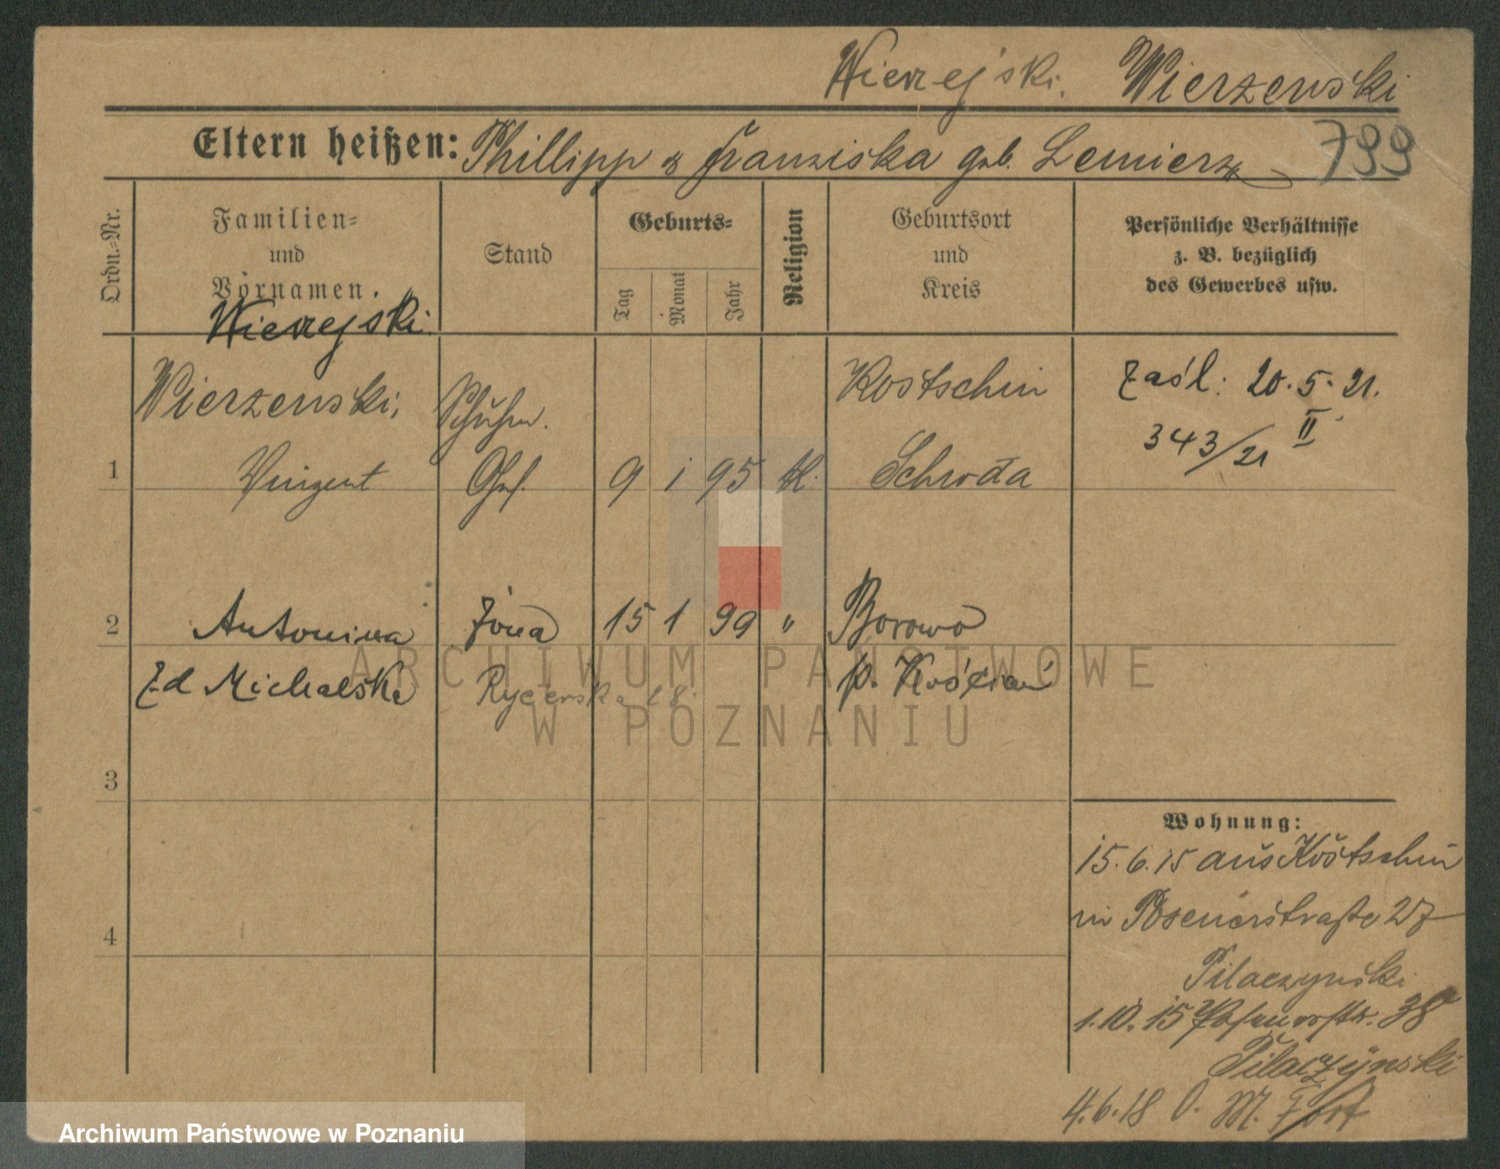 Wierzejski. Wierzenski
Eltern heißen: Phillipp & Franziska geb. Lemierz
799
Ordn.-Nr.
Familien-
und
Vornamen.
Stand
Geburts-
Tag
Monat
Jahr
Religion
Geburtsort
und
Kreis
Persönliche Verhältnisse
z. B. bezüglich
des Gewerbes usw.
Wierzejski.
Wierzenski, Schuhm. Kostschin zaśl: 20.5.21.
343/21 II
1 Vinzent 9 1 95 kl. Schroda
2 Antonina żona 15 1 99 " Borowo
z d Michalska Rycerska p. Kościan
3
4
Wohnung:
15.6.15 aus Kostschin
in Posenerstraße 27
Pilaczynski
1.10.15 Posenerstr. 38
Pilaczynski
4.6.18
ARCHIWUM PAŃSTWOWE
W POZNANIU
Archiwum Państwowe w Poznaniu